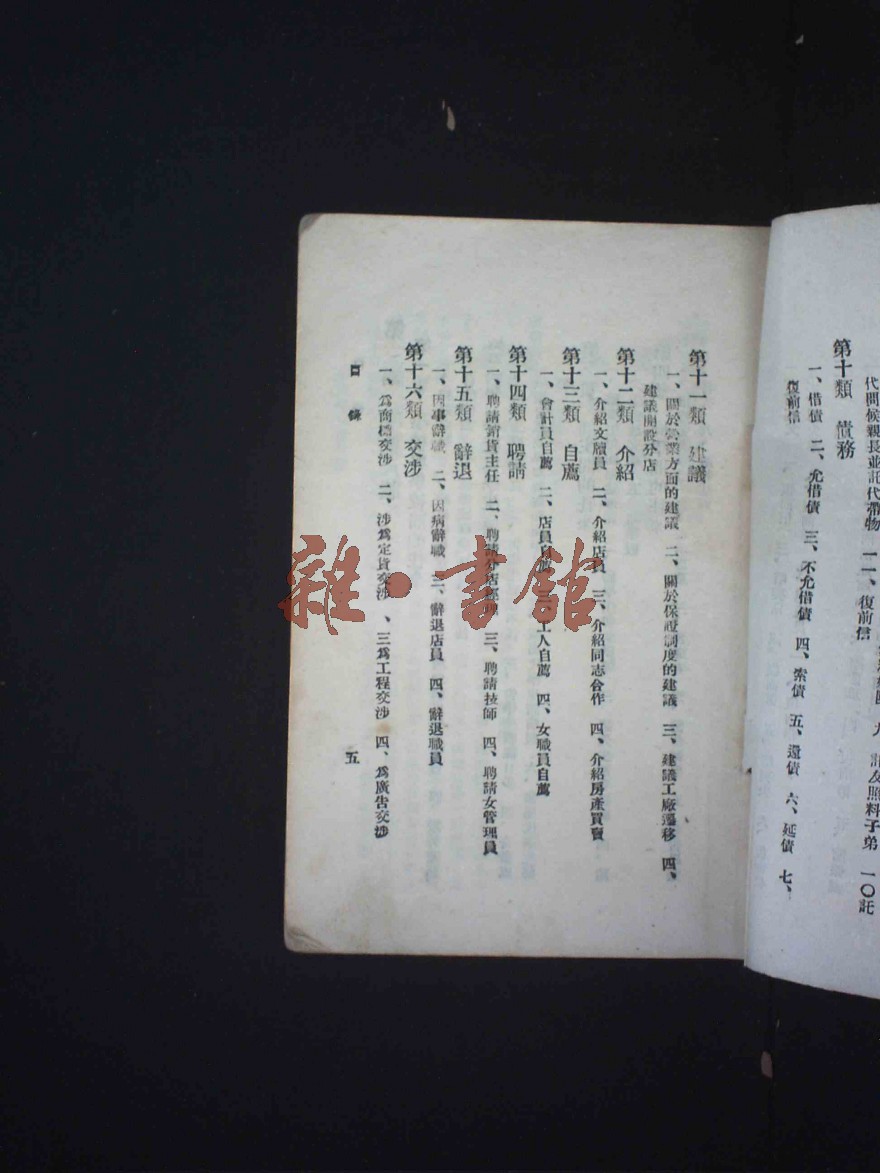 代問候親長並託代帶物 一一、復前信
九、請友照料子弟 一〇託
第十類 債務
一、借債 二、允借債 三、不允借債 四、索債 五、還債 六、延債 七、
復前信
第十一類 建議
一、關於營業方面的建議 二、關於保證制度的建議 三、建議工廠遷移 四、
建議開設分店
第十二類 介紹
一、介紹文牘員 二、介紹店員 三、介紹同志合作 四、介紹房產買賣
第十三類 自薦
一、會計員自薦 二、店員自薦 三、工人自薦 四、女職員自薦
第十四類 聘請
一、聘請銷貨主任 二、聘請分店經理 三、聘請技師 四、聘請女管理員
第十五類 辭退
一、因事辭職 二、因病辭職 三、辭退店員 四、辭退職員
第十六類 交涉
一、爲商標交涉 二、涉爲定貨交涉 、三爲工程交涉 四、爲廣告交涉
目錄
五
雜·書館